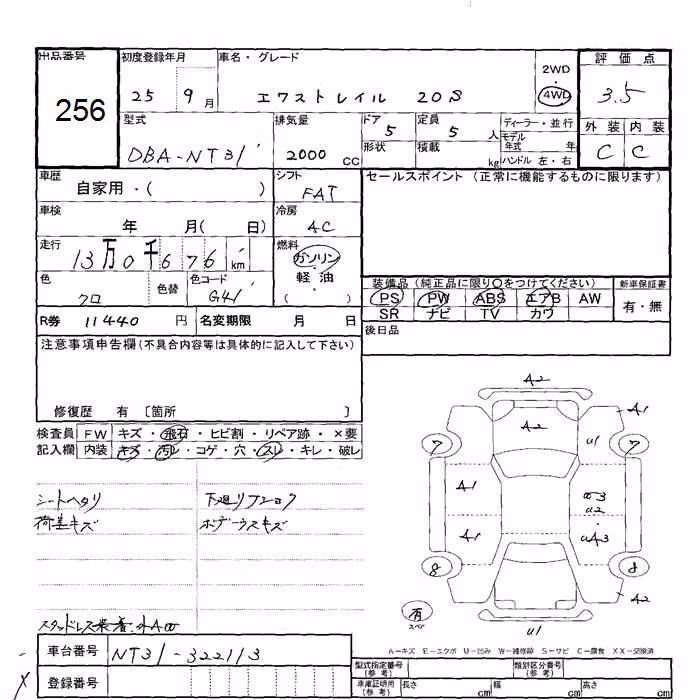 出品番号 初度登録年月 車名・グレード 評価点
256
25 9月 エクストレイル 20S 2WD 4WD 3.5
型式 排気量 ドア 5 定員 5人 ディーラー・並行 外装 内装
DBA-NT31 2000cc 形状 積載 kg モデル年式 年 C C
ハンドル 左・右
車歴 自家用・( ) シフト FAT セールスポイント (正常に機能するものに限ります)
車検 年 月( 日) 冷房 AC
走行 13万0千676km 燃料 ガソリン
軽油
( )
色 クロ 色替 色コード G41
装備品 (純正品に限り○をつけてください) 新車保証書
PS PW ABS エアB AW 有・無
SR ナビ TV カワ
R券 11440円 名変期限 月 日
後日品
注意事項申告欄(不具合内容等は具体的に記入して下さい)
修復歴 有 〔箇所 〕
検査員 FW キズ・飛石・ヒビ割・リペア跡・×要
記入欄 内装 キズ・汚レ・コゲ・穴・スレ・キレ・破レ
シートヘタリ
荷差キズ
ボデーウスキズ
A2
A2
A1
7
u1
7
A1
u3
u2
A1
uA3
8
8
A2
有
スペア
u1
A-キズ E-エクボ U-凹み W-補修跡 S-サビ C-腐食 XX-交換済
車台番号 NT31-322113
登録番号
型式指定番号(参考) 類別区分番号(参考)
車庫証明用(参考) 長さ cm 幅 cm 高さ cm